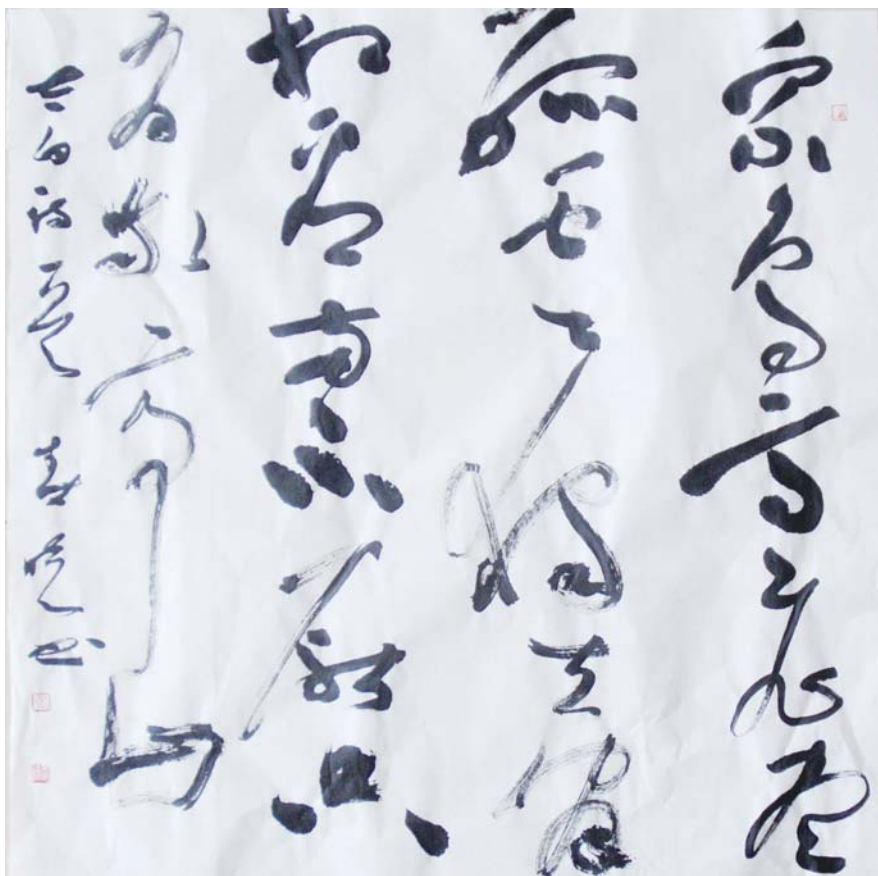 眾鳥高飛盡
孤雲獨去閒
相看兩不厭只
有敬亭山
太白詩 書